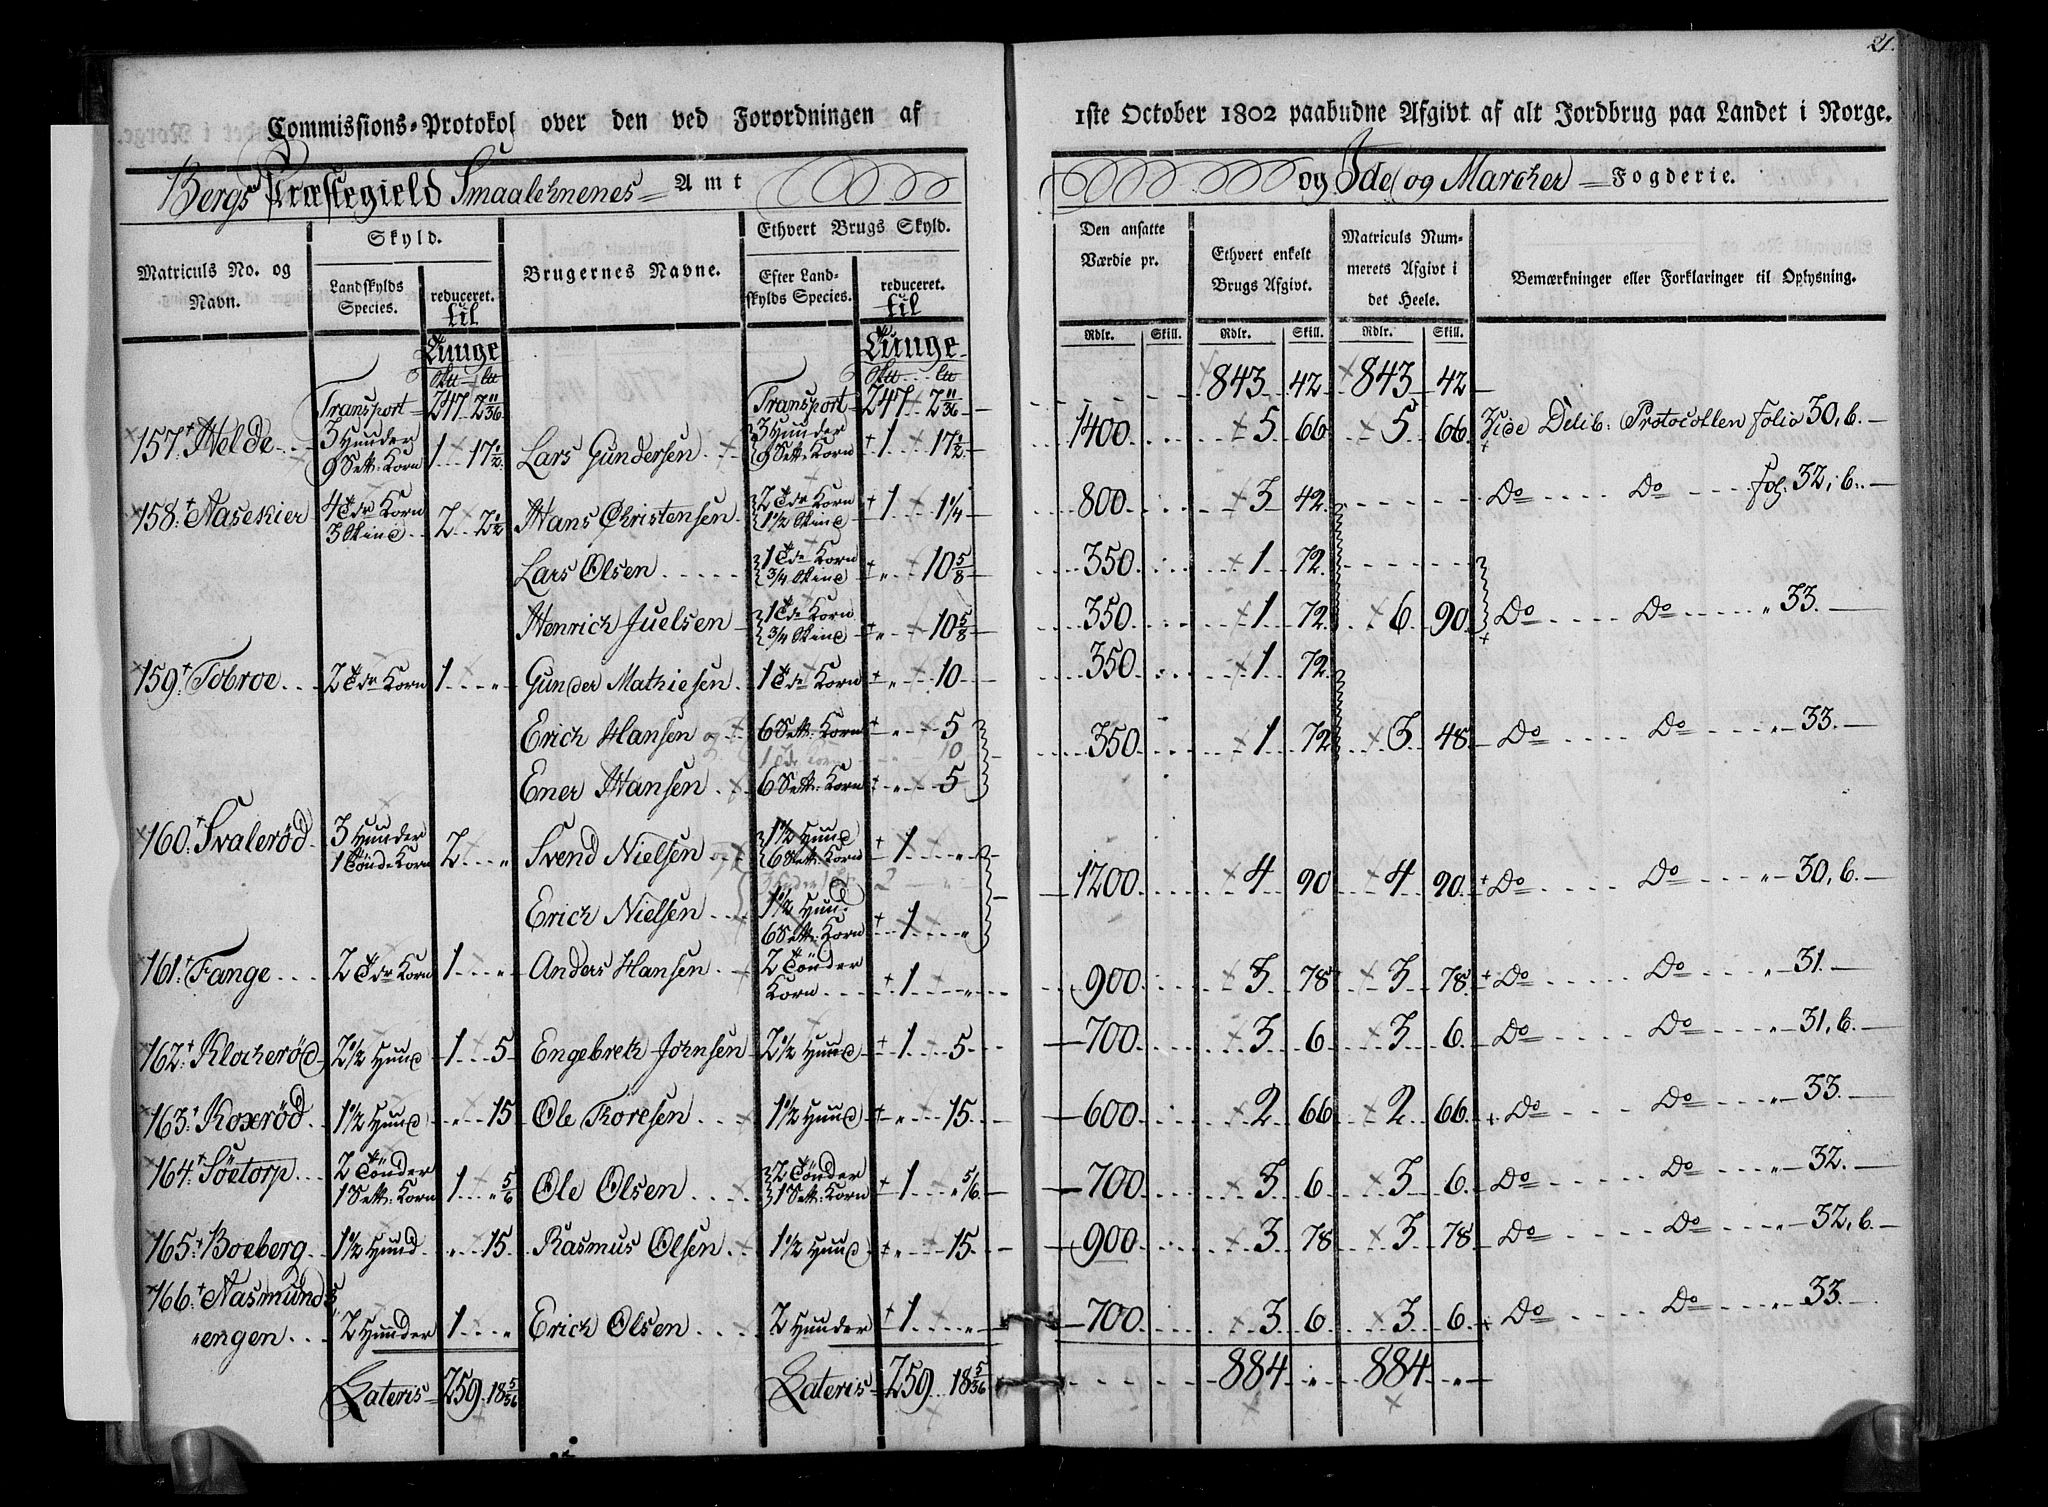 21.
Commissions-Protokol over den ved Forordningen af 1ste October 1802 paabudne Afgivt af alt Jordbrug paa Landet i Norge.
Bergs Præstegield Smaalehnenes Amt og Ide og Marcker Fogderie.
Matriculs No. og Navn. Skyld. Landskylds Species. reduceret. til Tunge Brugernes Navne. Ethvert Brugs Skyld. Efter Landskylds Species. reduceret. til Tunge Den ansatte Værdie pr. Ethvert enkelt Brugs Afgivt. Matriculs Nummerets Afgivt i det Heele. Bemærkninger eller Forklaringer til Oplysning.
Rdlr. Skill. Rdlr. Skill. Rdlr. Skill.
Transport 247 2 11/36 Transport 247 2 11/36 843 42 843 42
157 Helde 3 Hunder 9 Sett: Korn 1 17 1/2 Lars Gundersen 3 Hunder 9 Sett: Korn 1 17 1/2 1400 5 66 5 66 Vide Delib: Protocollen folio 30, b.
158 Aasekier 4 Tdr Korn 3 Skind 2 2 1/2 Hans Christensen 2 Tdr Korn 1 1/2 Skind 1 1 1/4 800 3 42 Do Do fol. 32, b.
Lars Olsen 1 Tde Korn 3/4 Skind " 10 5/8 350 1 72
Henrich Juelsen 1 Tde Korn 3/4 Skind " 10 5/8 350 1 72 6 90 Do Do " 33.
159 Tobroe 2 Tdr Korn 1 " Gunder Mathiesen 1 Tde Korn " 10 350 1 72
Erich Hansen og 6 Sett: Korn " 5 350 1 72 3 48 Do Do " 33.
1 Tde Korn 10
Ener Hansen 6 Sett: Korn " 5
160 Svalerød 3 Hunder 1 Tønde Korn 2 " Svend Nielsen og 1 1/2 Hund 6 Sett: Korn 1 " 1200 4 90 4 90 Do Do " 30, b.
Erich Nielsen 1 1/2 Hund 6 Sett: Korn 1 "
161 Fange 2 Tdr Korn 1 " Anders Hansen 2 Tønder Korn 1 " 900 3 78 3 78 Do Do " 31.
162 Klockerød 2 1/2 Hund 1 5 Engebreth Johnsen 2 1/2 Hund 1 5 700 3 6 3 6 Do Do " 31, b.
163 Koxrød 1 1/2 Hund " 15 Ole Thoresen 1 1/2 Hund " 15 600 2 66 2 66 Do Do " 33.
164 Søetorp 2 Tønder 1 Sett: Korn 1 " 5/6 Ole Olsen 2 Tønder 1 Sett: Korn 1 " 5/6 700 3 6 3 6 Do Do " 32.
165 Boeberg 1 1/2 Hund " 15 Rasmus Olsen 1 1/2 Hund " 15 900 3 78 3 78 Do Do " 32, b.
166 Aasmunds
engen 2 Hunder 1 " Erich Olsen 2 Hunder 1 " 700 3 6 3 6 Do Do " 33.
Lateris 259 18 5/36 Lateris 259 18 5/36 884 " 884 "